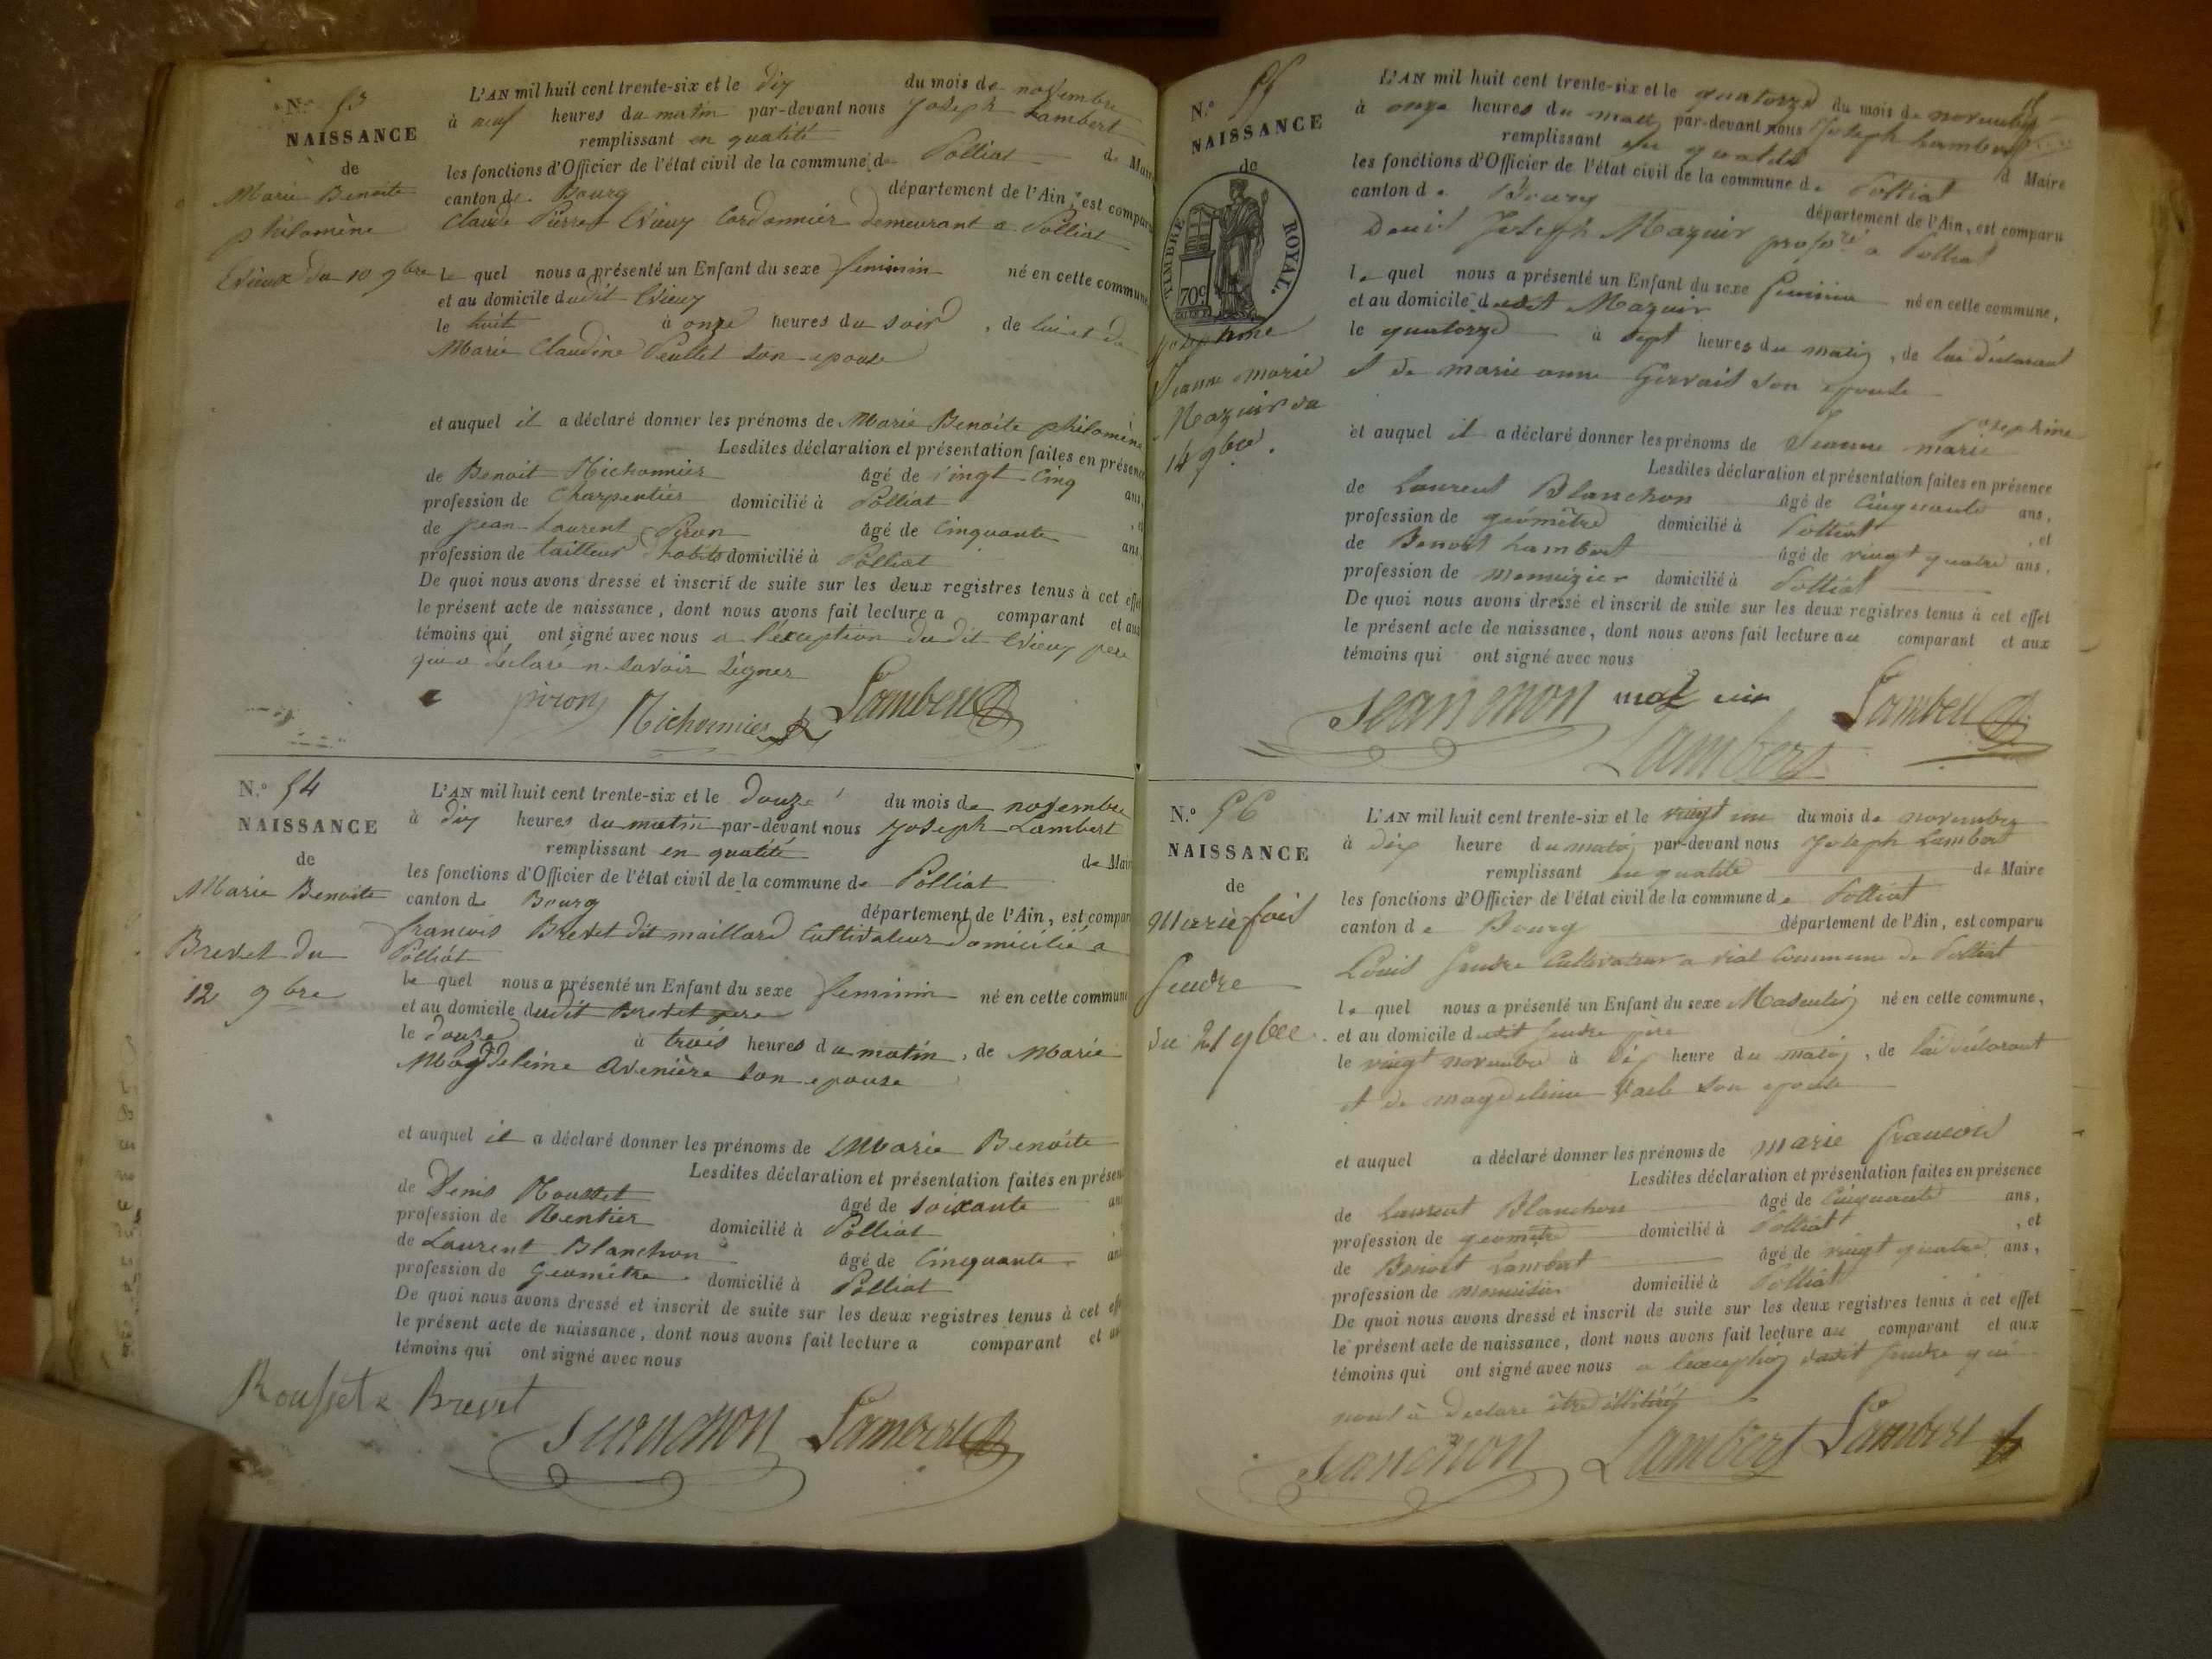 N.° 53
NAISSANCE
de
Marie Benoite
philomène
Evieux du 10 9bre
L'AN mil huit cent trente-six et le dix du mois de novembre
à neuf heures du matin par-devant nous Joseph Lambert
remplissant en qualité de Mai
les fonctions d'Officier de l'état civil de la commune de Polliat
canton de Bourg département de l'Ain, est compar
Claude Pierre Evieux Cordonnier demeurant a Polliat
le quel nous a présenté un Enfant du sexe feminin né en cette commune
et au domicile dudit Evieux
le huit à onze heures du soir, de lui et de
Marie Claudine son epouse
et auquel il a déclaré donner les prénoms de Marie Benoite philomène
Lesdites déclaration et présentation faites en présence
de Benoit Michonnier âgé de vingt Cinq ans,
profession de Charpentier domicilié à Polliat
de jean Laurent Piron âgé de Cinquante ans,
profession de tailleur d'habits domicilié à Polliat
De quoi nous avons dressé et inscrit de suite sur les deux registres tenus à cet effet
le présent acte de naissance, dont nous avons fait lecture a comparant et aux
témoins qui ont signé avec nous a l'exception du dit Evieux pere
qui a déclaré ne savoir signer
piron Michonnier Lambert
N.° 54
NAISSANCE
de
Marie Benoite
Brevet du
12 9bre
L'AN mil huit cent trente-six et le douze du mois de novembre
à dix heures du matin par-devant nous Joseph Lambert
remplissant en qualité de Mai
les fonctions d'Officier de l'état civil de la commune de Polliat
canton de Bourg département de l'Ain, est compar
françois Brevet dit maillard Cultivateur domicilié a
Polliat
le quel nous a présenté un Enfant du sexe feminin né en cette commune
et au domicile dudit Brevet pere
le douze à trois heures du matin, de Marie
Magdeleine Avenière son epouse
et auquel il a déclaré donner les prénoms de Marie Benoite
Lesdites déclaration et présentation faites en présen
de Denis Rousset âgé de soixante an
profession de Rentier domicilié à Polliat
de Laurent Blanchon âgé de Cinquante an
profession de Géomètre domicilié à Polliat
De quoi nous avons dressé et inscrit de suite sur les deux registres tenus à cet eff
le présent acte de naissance, dont nous avons fait lecture a comparant et au
témoins qui ont signé avec nous
Rousset Brevet
Lambert
N.° 55
NAISSANCE
de
TIMBRE ROYAL.
70c
josephine
Jeanne marie
Mazuir du
14 9bre.
L'AN mil huit cent trente-six et le quatorze du mois de novembre
à onze heures du matin par-devant nous Joseph Lambert
remplissant en qualité d Maire
les fonctions d'Officier de l'état civil de la commune de Polliat
canton de Bourg département de l'Ain, est comparu
Denis Joseph Mazuir à Polliat
le quel nous a présenté un Enfant du sexe feminin né en cette commune,
et au domicile dudit Mazuir
le quatorze à sept heures du matin, de lui déclarant
et de marie anne Gervais son epouse
josephine
et auquel il a déclaré donner les prénoms de Jeanne marie
Lesdites déclaration et présentation faites en présence
de Laurent Blanchon âgé de Cinquante ans,
profession de géomètre domicilié à Polliat, et
de Benoit Lambert âgé de vingt quatre ans,
profession de menuizier domicilié à Polliat
De quoi nous avons dressé et inscrit de suite sur les deux registres tenus à cet effet
le présent acte de naissance, dont nous avons fait lecture au comparant et aux
témoins qui ont signé avec nous
mazuir Lambert
Lambert
N.° 56
NAISSANCE
de
Marie fois
feudre
du 21 9bre.
L'AN mil huit cent trente-six et le vingt un du mois de novembre
à dix heure du matin par-devant nous Joseph Lambert
remplissant en qualité de Maire
les fonctions d'Officier de l'état civil de la commune de Polliat
canton de Bourg département de l'Ain, est comparu
Louis feudre Cultivateur a vial Commune de Polliat
le quel nous a présenté un Enfant du sexe Masculin né en cette commune,
et au domicile dudit feudre père
le vingt novembre à dix heure du matin, de lui déclarant
et de magdeleine son epouse
et auquel a déclaré donner les prénoms de marie françois
Lesdites déclaration et présentation faites en présence
de Laurent Blanchon âgé de Cinquante ans,
profession de géomètre domicilié à Polliat, et
de Benoit Lambert âgé de vingt quatre ans,
profession de menuisier domicilié à Polliat
De quoi nous avons dressé et inscrit de suite sur les deux registres tenus à cet effet
le présent acte de naissance, dont nous avons fait lecture au comparant et aux
témoins qui ont signé avec nous a l'exception dudit feudre qui
nous à déclaré être illitéré
Lambert Lambert